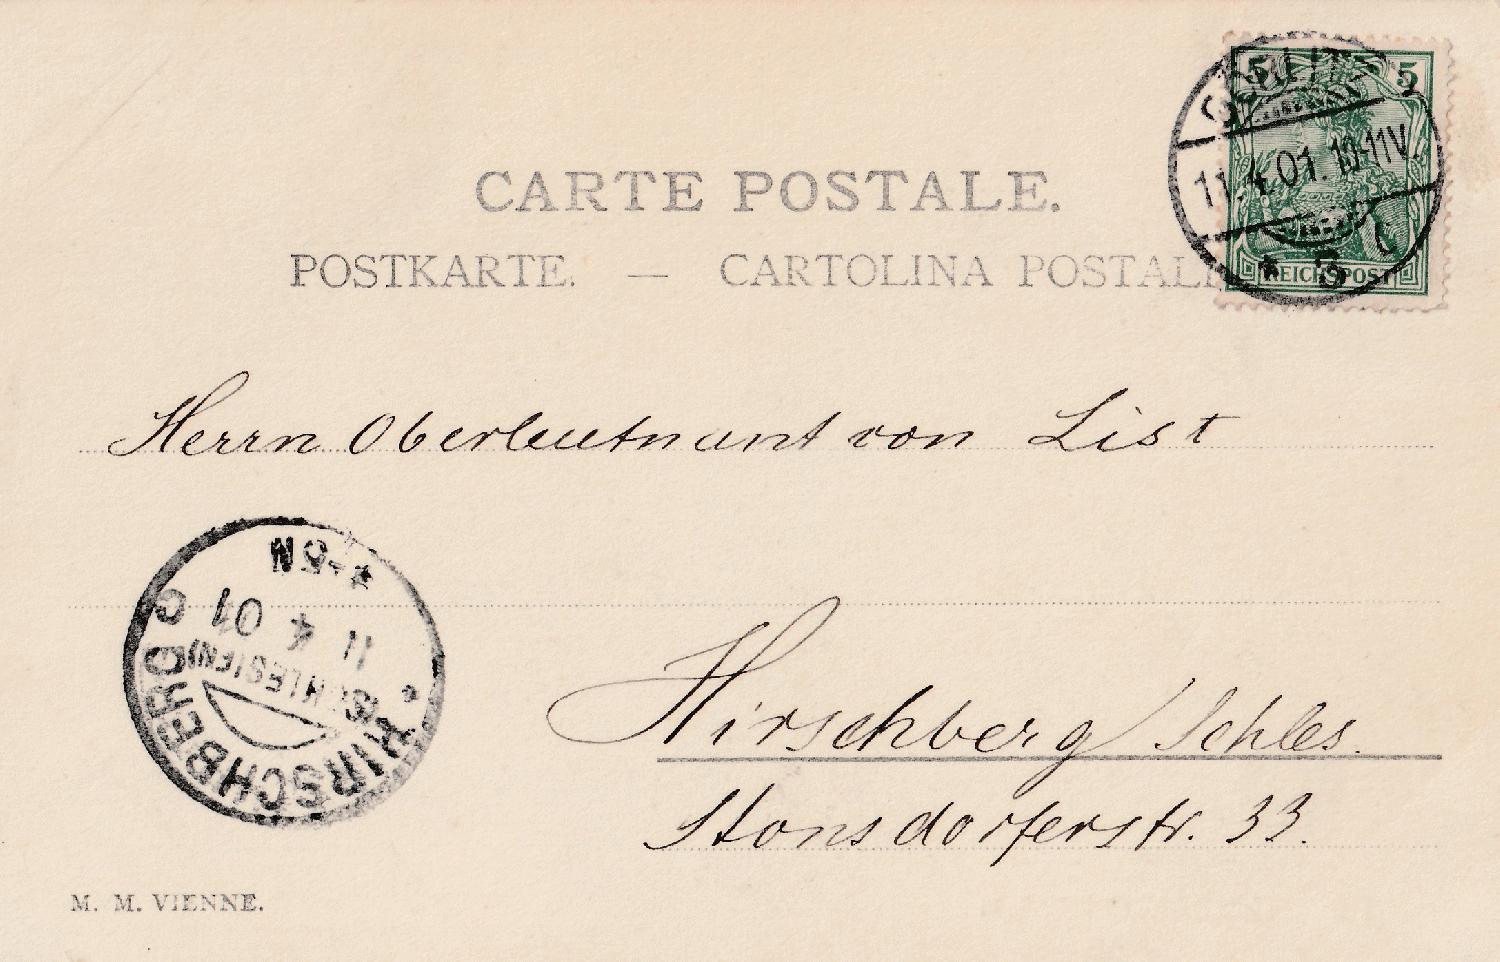 CARTE POSTALE.
POSTKARTE. — CARTOLINA POSTALE
5 5
GÖRLITZ
11.4.01. 10-11V.
* B
REICHSPOST
Herrn Oberleutnant von List
HIRSCHBERG
(SCHLESIEN)
11 4 01
Hirschberg/Schles.
Stonsdorferstr. 33.
M. M. VIENNE.